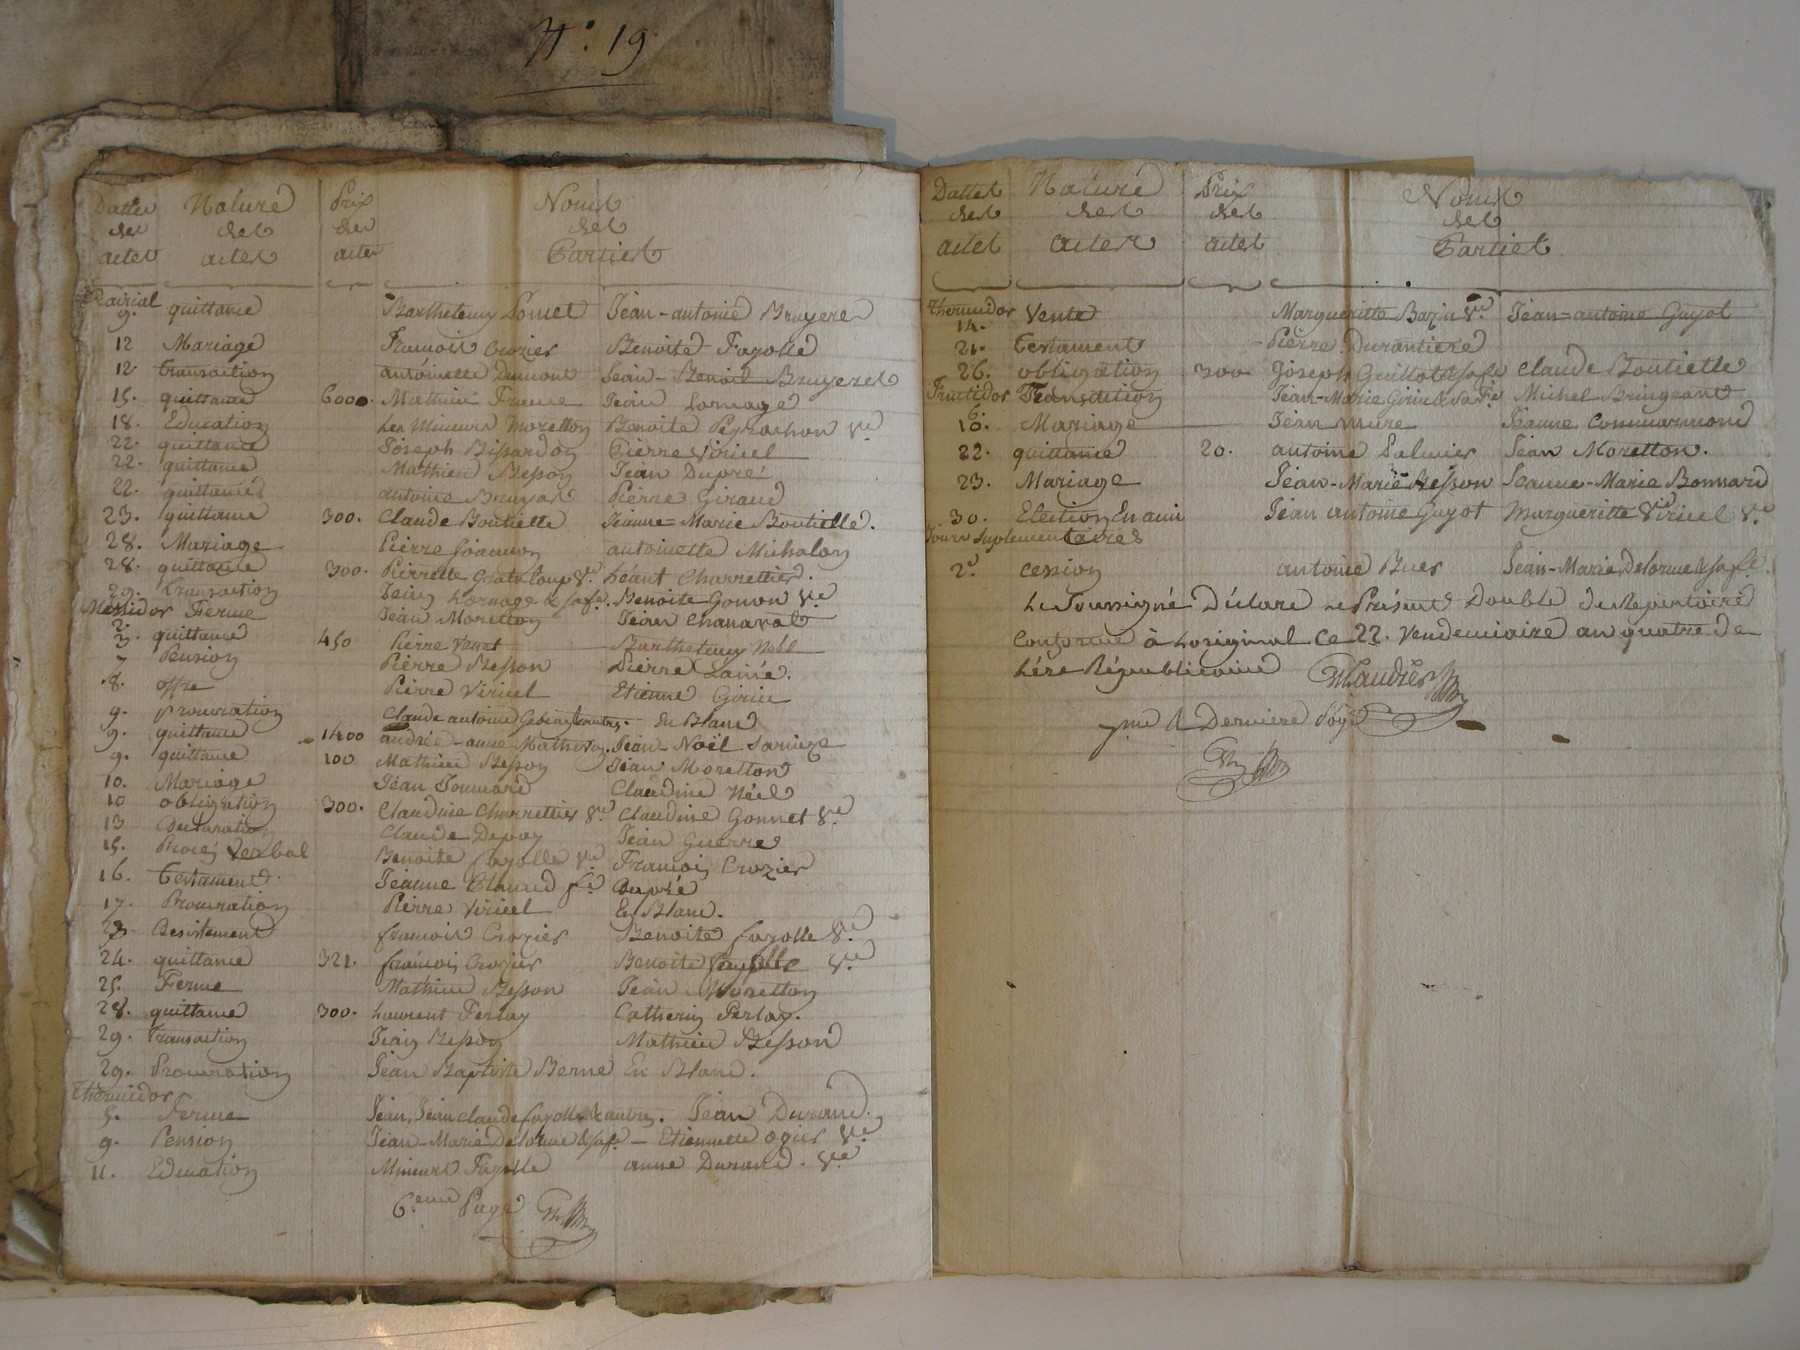 N.° 19
Dattes Nature Prix Noms
des des des des
actes actes actes Parties
Prairial
9. quittance Barthelemy Jean-antoine Bruyere
12 Mariage Francois Crozier Benoite Fayolle
12 transaction antoinette Dumont Jean-Benoit Bruyeres
15. quittance 6000. Mathieu France Jean Lornage
18. Education Les Mineurs Moretton Benoite Peyrachon Ve
22. quittance Joseph Bissardon Pierre Viricel
22. quittance Mathieu Besson Jean Dupré
22. quittance antoine Bruyas Pierre Giraud
23. quittance 300. Claude Boutielle Jeanne-Marie Boutielle.
28. Mariage Pierre antoinette Michalon
28. quittance 300. Pierrette Grataloup Ve. Charrettier.
29. transaction Jean Lornage & sa fe. Benoite Gonon Ve
Messidor
2. Ferme Jean Moretton Jean Chanavat
3. quittance 450 Pierre Barthelemy
7 Pension Pierre Besson Pierre Lainé.
8. offre Pierre Viricel Etienne Girin
9. procuration Claude antoine & autres. En Blanc
9. quittance 1400 andrée-anne Jean-Noël
9. quittance 100 Mathieu Besson Jean Moretton
10. Mariage Jean Claudine Néel
10 obligation 300. Claudine Charrettier Ve. Claudine Gonnet Ve
13 Declaration Claude Jean Guerre
15. Procès Verbal Benoite Fayolle Ve Francois Crozier
16. Testament. Jeanne fe Dupré
17. Procuration Pierre Viricel En Blanc.
23 Desistement francois Crozier Benoite fayolle Ve
24. quittance 321. francois Crozier Benoite fayolle Ve
25. Ferme Mathieu Besson Jean Moretton
28. quittance 300. Laurent Ferlay Catherin Ferlay.
29. transaction Jean Besson Mathieu Besson
29. Procuration Jean Baptiste Berne En Blanc.
Thermidor
5. Ferme Jean, Jean claude fayolle & autres. Jean Durand.
9. Pension Jean-Marie Delorme & sa fe. - Etiennette ogier Ve
11. Education Mineurs Fayolle anne Durand. Ve
6.eme Page
Dattes Nature Prix Noms
des des des des
actes actes actes Parties
Thermidor
14. Vente Margueritte Bazin Ve. Jean-antoine Guyot
21. testament Pierre Durantiere
26. obligation 300. Joseph Guillot & sa fe Claude Boutielle
Fructidor
6. Transaction Jean-Marie Girin & sa fe Michel Bringeant
10. Mariage Jean Mure Jeanne Commarmond
22. quittance 20. antoine Palmier Jean Moretton.
23. Mariage Jean-Marie Besson Jeanne-Marie Bonnard
30. Election En ami Jean antoine Guyot Margueritte Viricel Ve
Jours Suplementaires
2.e cession antoine Jean-Marie Delorme & sa fe.
Le Soussigné Déclare Le Présent Double du Repertoire
Conforme à Loriginal Ce 22. Vendemiaire an quatre de
Lére Républicaine
7.me & Derniere